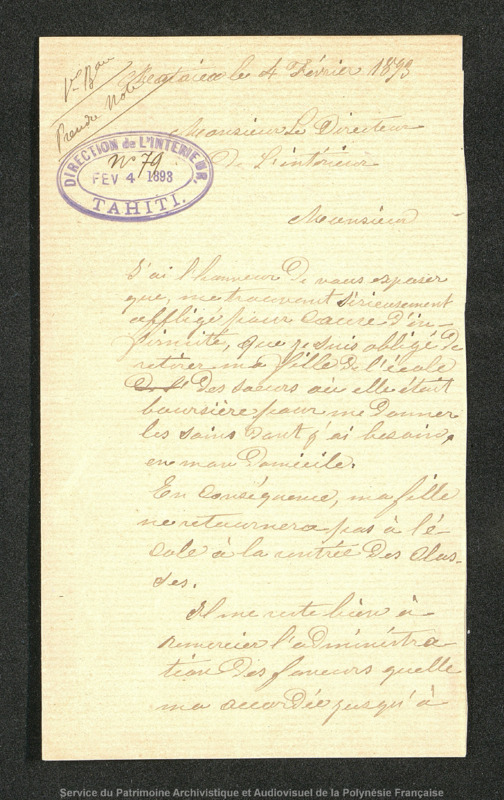 Vo Bau
Prendre Note
le 4 Février 1893
Monsieur Le Directeur
De L'intérieur
DIRECTION de L'INTERIEUR.
No 79
FEV 4 1893
TAHITI.
Monsieur
J'ai l'honneur De vous exposer
que, me trouvent sérieusement
affligé pour cause D'in-
firmité, que je suis obligé De
retirer ma fille De l'école
Des soeurs où elle était
boursière pour me Donner
les soins Dont j'ai besoin,
en mon Domicile.
En conséquence, ma fille
ne retournera pas à l'é-
cole à la rentrée Des clas-
ses.
Il me reste bien à
remercier l'administra
tion Des faveurs quelle
ma accordée jusqu'à
Service du Patrimoine Archivistique et Audiovisuel de la Polynésie Française